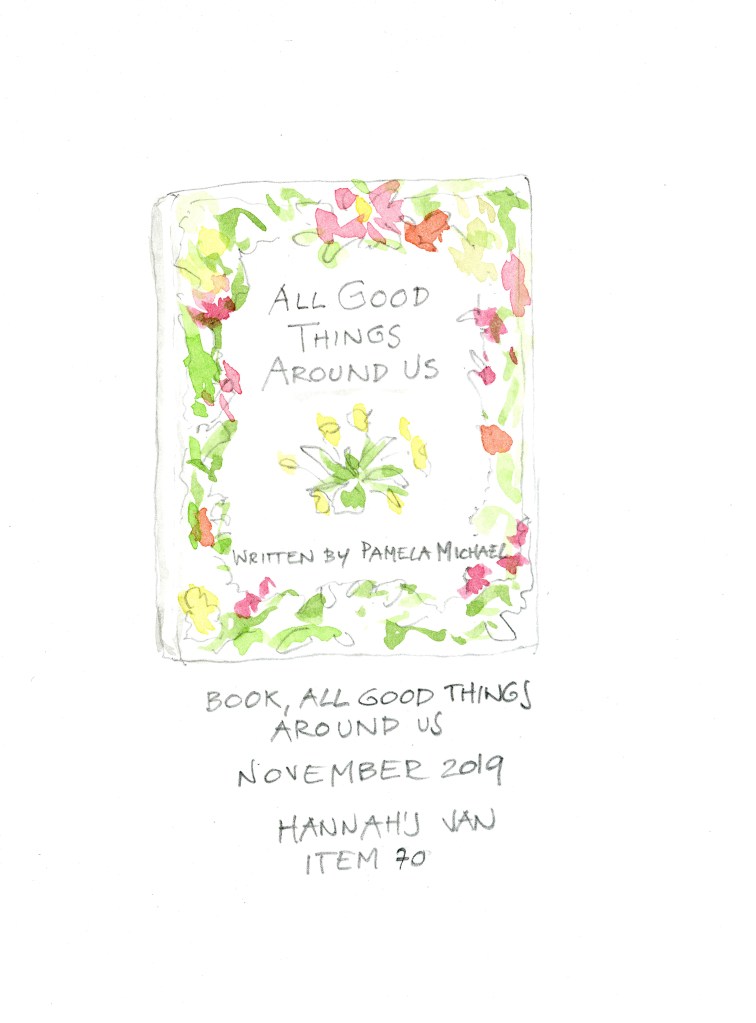 ALL GOOD
THINGS
AROUND US
WRITTEN BY PAMELA MICHAEL
BOOK, ALL GOOD THINGS
AROUND US
NOVEMBER 2019
HANNAH'S VAN
ITEM 70